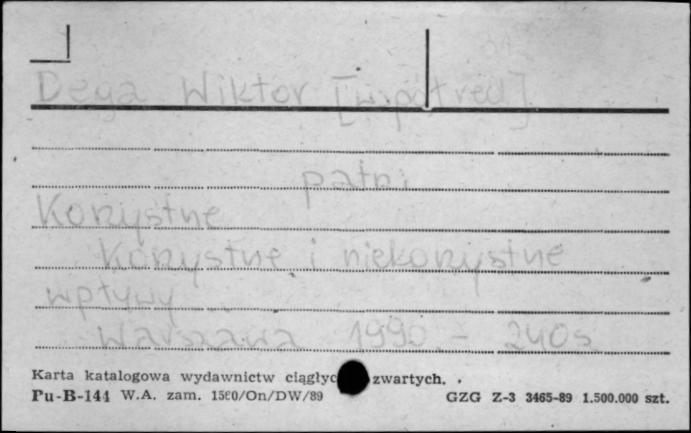 Dega Wiktor [współred]
patrz
Korzystne
Korzystne i niekorzystne
wpływy ...
Warszawa 1990 - 240s
Karta katalogowa wydawnictw ciągłyc zwartych.
Pu-B-144 W.A. zam. 1580/On/DW/89 GZG Z-3 3465-89 1.500.000 szt.